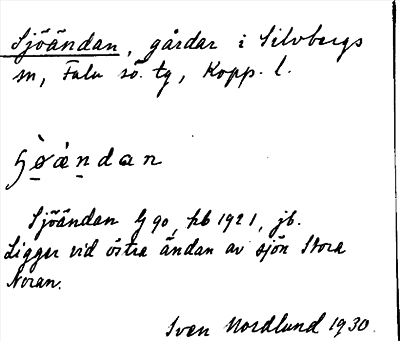 Sjöändan, gårdar i Silvbergs
sn, Falu sö. tg, Kopp. l.
Sjöändan G 90, hb 1921, jb.
Ligger vid östra ändan av sjön Stora
Noran.
Sven Nordlund 1930.